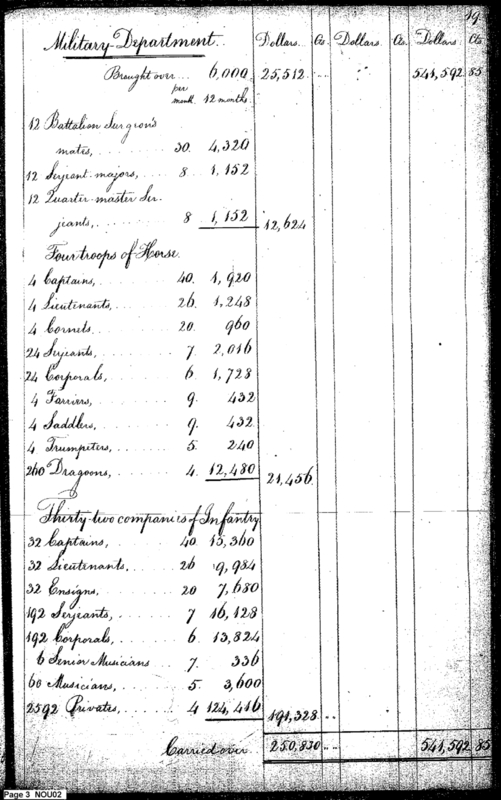 19
Military Department.. Dollars. Cts. Dollars. Cts. Dollars. Cts
Brought over... 6,000. 25,512... 541,592.85
per month. 12 months.
12 Battalion Surgeon's
mates, ....... 30. 4,320
12 Serjeant-majors, .... 8. 1,152
12 Quarter-master Ser-
jeants, ........ 8 1,152 12,624
Four troops of Horse.
4 Captains, ........ 40. 1,920
4 Lieutenants, ..... 26. 1,248
4 Cornets. ........ 20. 960
24 Serjeants, ....... 7. 2,016
24 Corporals, ...... 6. 1,728
4 Farriers, ....... 9. 432
4 Saddlers, ....... 9. 432
4 Trumpeters, ..... 5. 240
260 Dragoons, ...... 4. 12,480 21,456
Thirty-two companies of Infantry
32 Captains, ....... 40. 15,360
32 Lieutenants. ..... 26 9,984
32 Ensigns, ....... 20 7,680
192 Serjeants, ...... 7 16,128
192 Corporals, ...... 6. 13,824
6 Senior Musicians 7. 336
60 Musicians, ..... 5. 3,600
2592 Privates, ...... 4 124,416 191,328...
Carried over. 250,920... 541,592.85
Page 3 NOU02